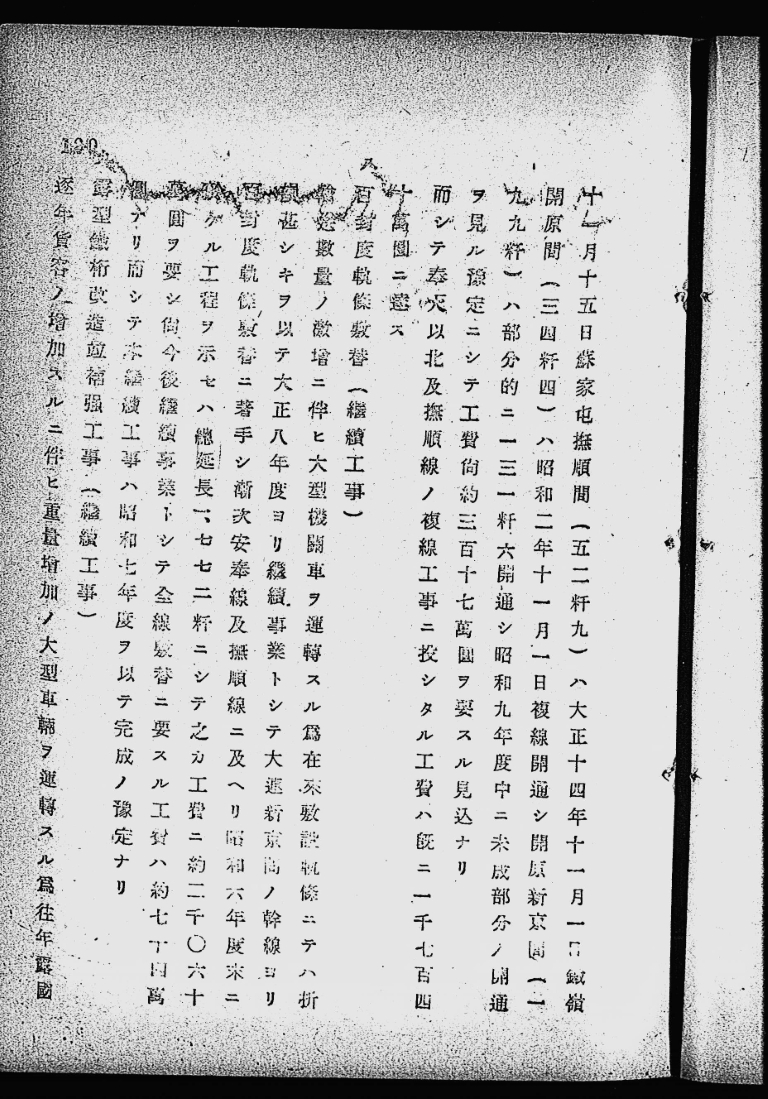 十一月十五日蘇家屯撫順間(五二粁九)ハ大正十四年十一月一日鐵嶺
開原間(三四粁四)ハ昭和二年十一月一日複線開通シ開原新京間(一
九九粁)ハ部分的ニ一三一粁六開通シ昭和九年度中ニ未成部分ノ開通
ヲ見ル豫定ニシテ工費尙約三百十七萬圓ヲ要スル見込ナリ
而シテ奉天以北及撫順線ノ複線工事ニ投シタル工費ハ既ニ一千七百四
十萬圓ニ達ス
百封度軌條敷替(繼續工事)
數量ノ激增ニ伴ヒ大型機關車ヲ運轉スル爲在來敷設軌條ニテハ折
甚シキヲ以テ大正八年度ヨリ繼續事業トシテ大連新京間ノ幹線ヨリ
百封度軌條敷替ニ著手シ漸次安奉線及撫順線ニ及ヘリ昭和六年度末ニ
ケル工程ヲ示セハ總延長一、七七二粁ニシテ之カ工費ニ約二千〇六十
萬圓ヲ要シ尙今後繼續事業トシテ全線敷替ニ要スル工費ハ約七十四萬
圓ナリ而シテ本繼續工事ハ昭和七年度ヲ以テ完成ノ豫定ナリ
露型鐵桁改造竝補强工事(繼續工事)
逐年貨客ノ增加スルニ伴ヒ重量增加ノ大型車輛ヲ運轉スル爲往年露國